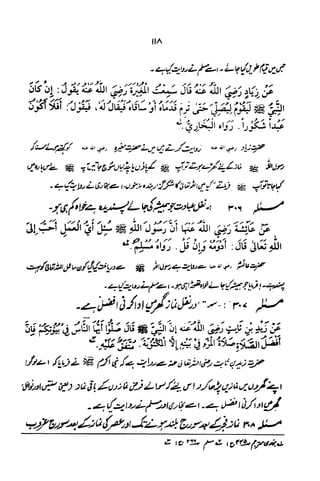 ۱۱۸
جس میں قیام طویل کیا جائے۔ اسے مسلم نے روایت کیا ہے۔
عَنْ زِيَادٍ رَضِيَ اللّٰهُ عَنْهُ قَالَ سَمِعْتُ الْمُغِيْرَةَ رَضِيَ اللّٰهُ عَنْهُ يَقُوْلُ : إِنْ كَانَ
النَّبِيُّ ﷺ لَيَقُوْمُ لِيُصَلِّيَ حَتّٰى تَرِمَ قَدَمَاهُ أَوْ سَاقَاهُ فَيُقَالُ لَهُ ، فَيَقُوْلُ: أَفَلَا أَكُوْنُ
عَبْدًا شَكُوْرًا . رَوَاهُ الْبُخَارِيُّ .
حضرت زیاد رضی اللہ عنہ روایت کرتے ہیں میں نے حضرت مغیرہ رضی اللہ عنہ کو کہتے ہوئے سنا کہ
رسول اللہ ﷺ نماز کے لئے کھڑے ہوتے تو آپ ﷺ کے پاؤں یا پنڈلیاں سوج جاتیں آپ ﷺ سے اس بارہ میں
کہا جاتا تو آپ ﷺ فرماتے "کیا میں اللہ تعالیٰ کا شکر گزار بندہ نہ بنوں۔" اسے بخاری نے روایت کیا ہے۔
مسئلہ ۳۰۶ : نفل عبادت جو ہمیشہ کی جائے پسندیدہ ہے خواہ کم ہی ہو۔
عَنْ عَائِشَةَ رَضِيَ اللّٰهُ عَنْهَا أَنَّ رَسُوْلَ اللّٰهِ ﷺ سُئِلَ أَيُّ الْعَمَلِ أَحَبُّ إِلَى
اللّٰهِ تَعَالٰى قَالَ : أَدْوَمُهُ وَإِنْ قَلَّ . رَوَاهُ مُسْلِمٌ .
حضرت عائشہ رضی اللہ عنہا سے روایت ہے رسول اللہ ﷺ سے دریافت کیا گیا کون سا عمل اللہ تعالیٰ کو بہت
پسند ہے۔ فرمایا جو ہمیشہ کیا جائے خواہ تھوڑا ہی ہو۔ اسے مسلم نے روایت کیا ہے۔
مسئلہ ۳۰۷ : اور نفل نماز گھر میں ادا کرنی افضل ہے۔
عَنْ زَيْدِ بْنِ ثَابِتٍ رَضِيَ اللّٰهُ عَنْهُ أَنَّ النَّبِيَّ ﷺ قَالَ صَلُّوْا أَيُّهَا النَّاسُ فِيْ بُيُوْتِكُمْ فَإِنَّ
أَفْضَلَ الصَّلَاةِ صَلَاةُ الْمَرْءِ فِيْ بَيْتِهِ إِلَّا الْمَكْتُوْبَةَ . مُتَّفَقٌ عَلَيْهِ .
حضرت زید بن ثابت رضی اللہ تعالیٰ عنہ سے روایت ہے کہ نبی اکرم ﷺ نے فرمایا کہ اے لوگو!
اپنے گھروں میں نمازیں پڑھا کرو اس لئے کہ سوائے فرض نمازوں کے باقی نماز (یعنی سنتیں اور نوافل)
گھر میں ادا کرنی افضل ہے۔ اسے بخاری اور مسلم نے روایت کیا ہے۔
مسئلہ ۳۰۸ نماز فجر کے بعد سورج بلند ہونے تک اور عصر کی نماز کے بعد سورج غروب